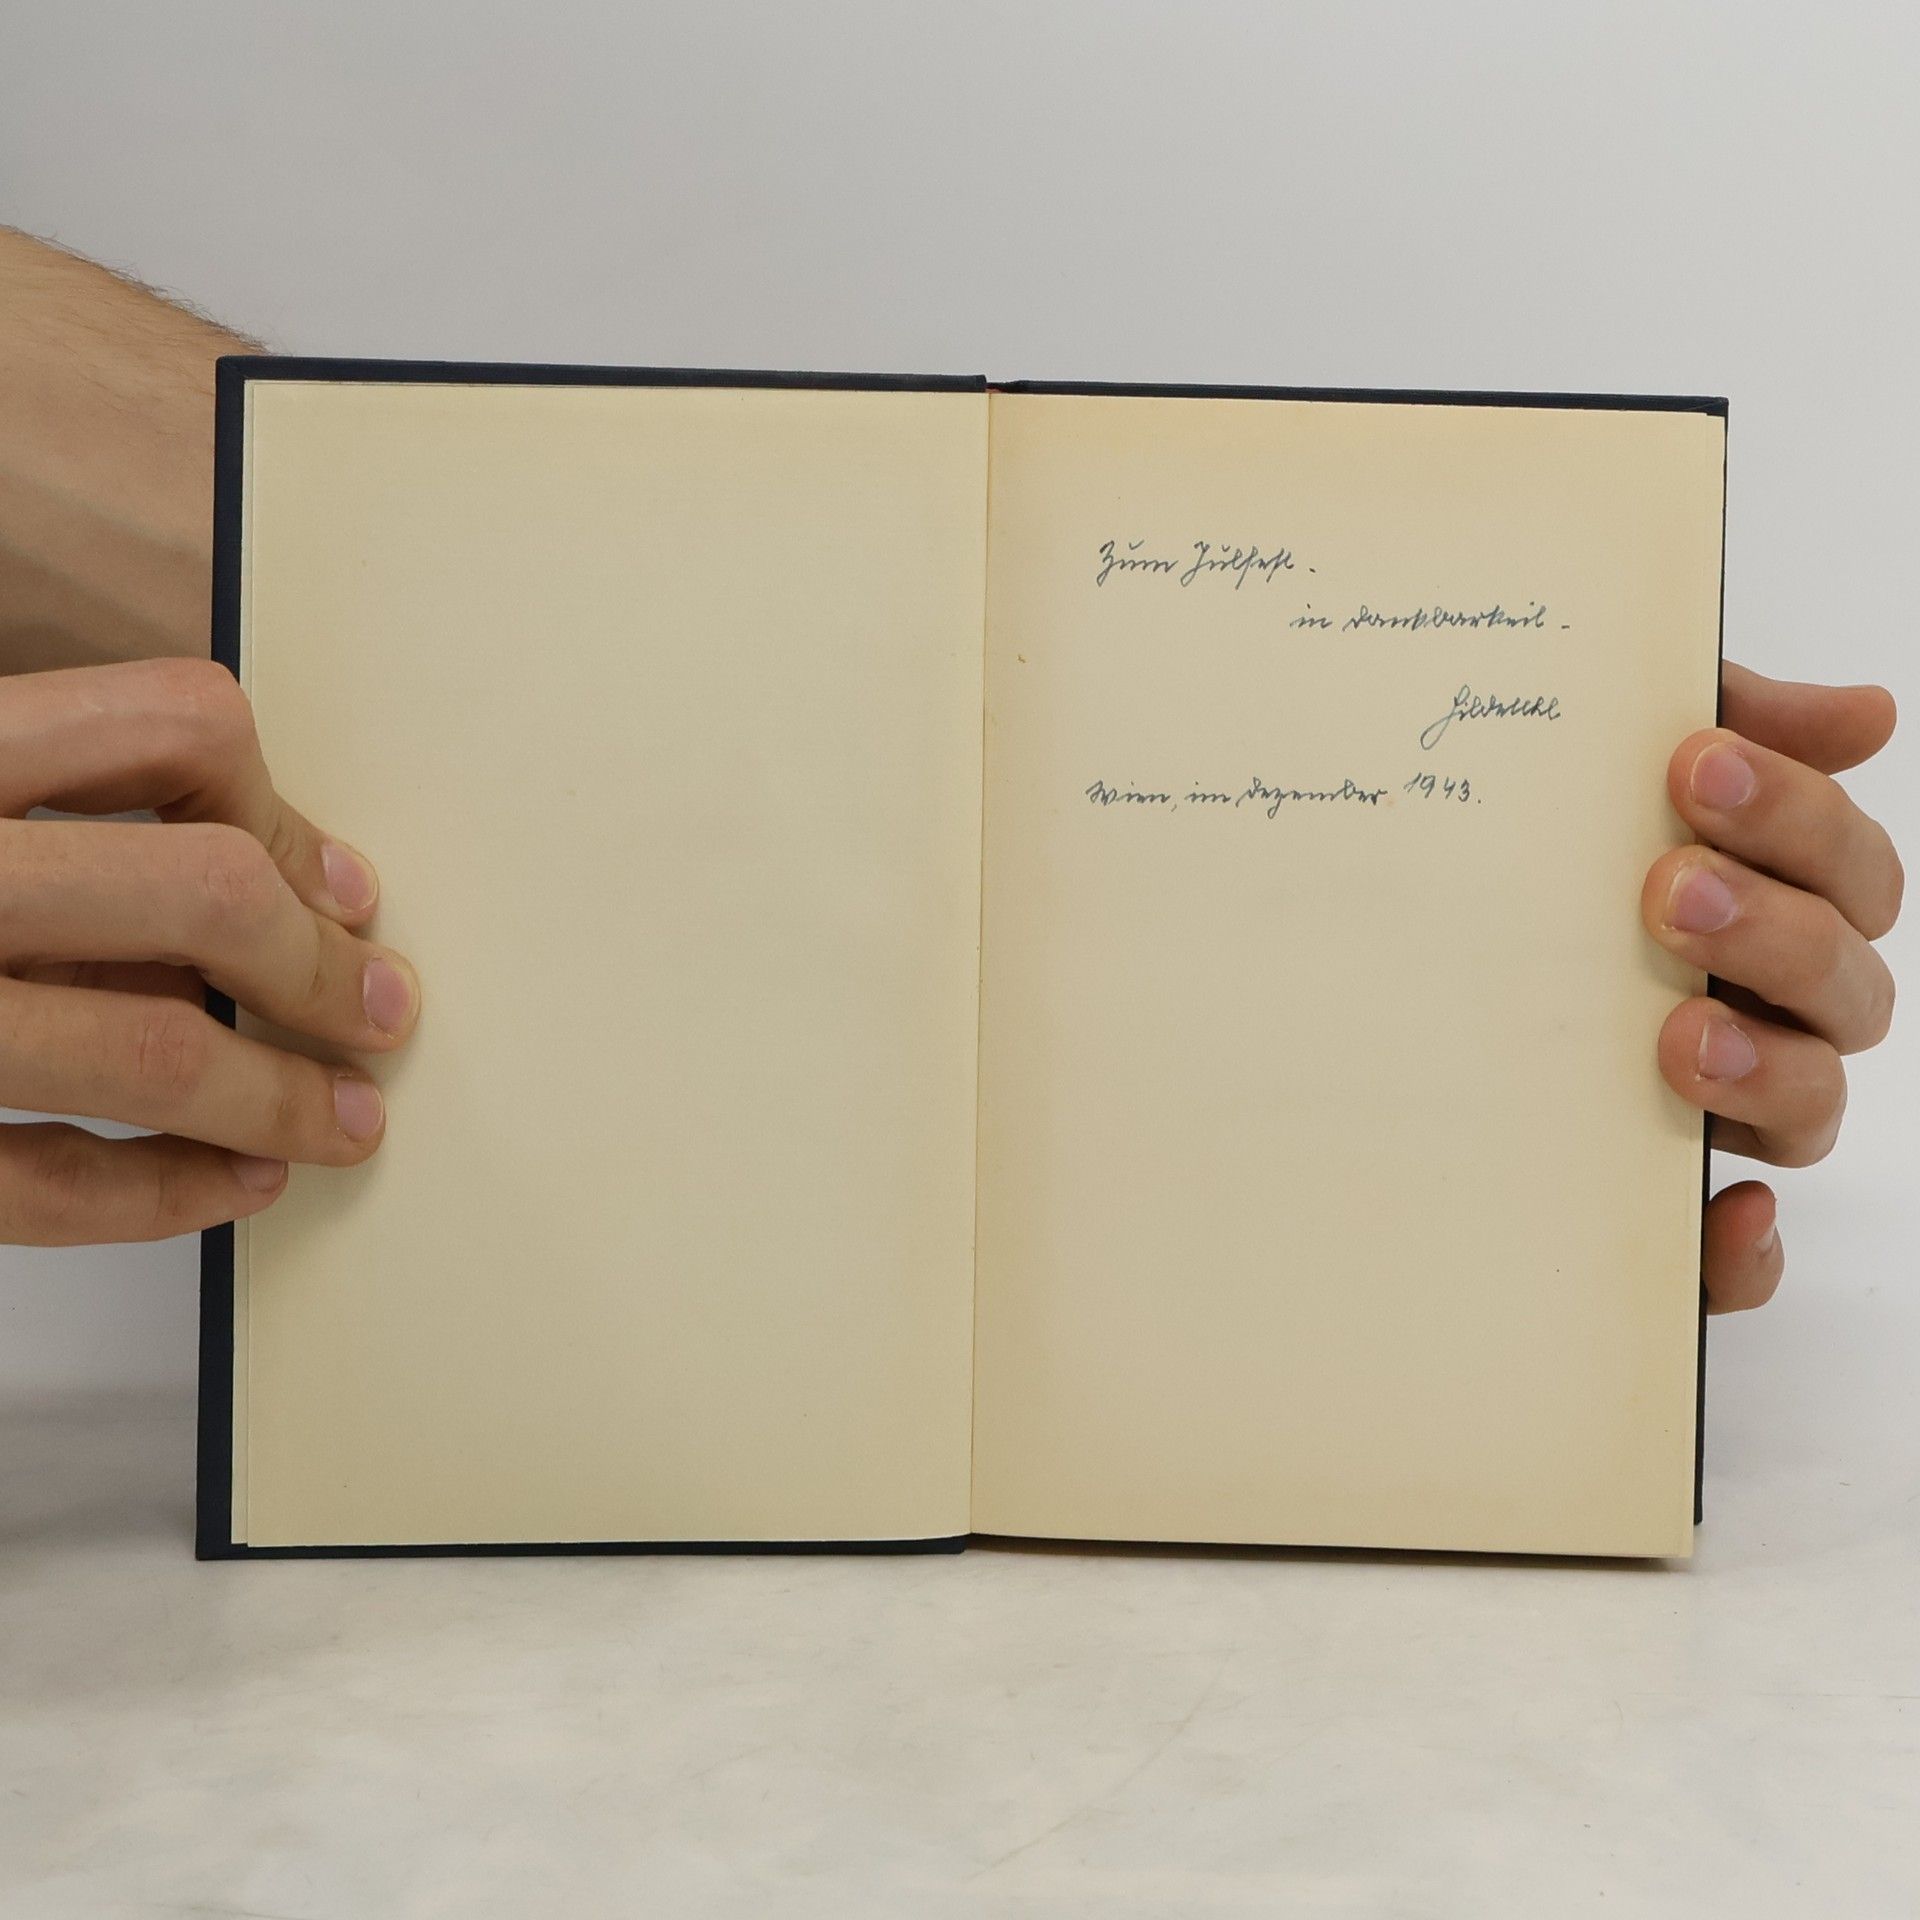 Zum Julfest.
in Dankbarkeit -
Wien, im Dezember 1943.